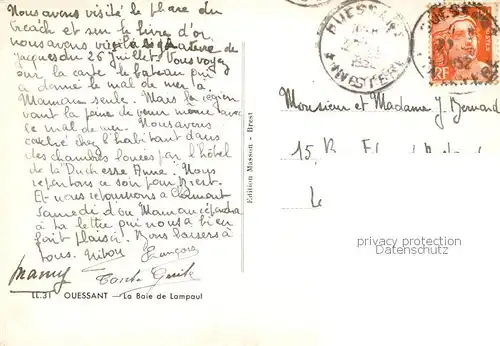 Nous avons visité le phare du
Créach et sur le livre d'or
nous avons vu la signature de
Jacques du 26 juillet. Vous voyez
sur la carte le bateau qui
a donné le mal de mer à
Maman seule. Mais la région
vaut la peine de venir même avec
le mal de mer. Nous avons
couché chez l'habitant dans
des chambres louées par l'hôtel
de la Duchesse Anne. Nous
repartons ce soir pour Brest.
Et nous retournons à Clamart
Samedi d'où Maman répondra
à ta lettre qui nous a bien
fait plaisir. Nous baisers à
tous. Nibou François
Mamy Tante Guite
LL.31 OUESSANT — La Baie de Lampaul
Edition Masson - Brest
OUESSANT
FINISTERE
RF
POSTES
Monsieur et Madame J. Bernard
15, R
privacy protection
Datenschutz